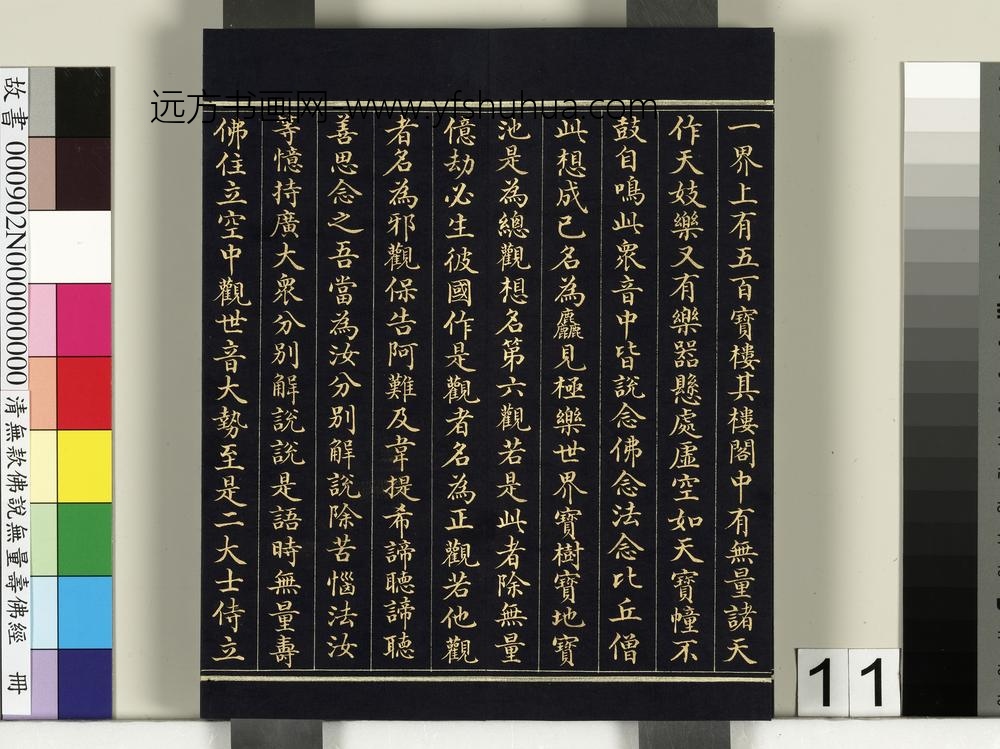 一界上有五百寶樓其樓閣中有無量諸天
作天妓樂又有樂器懸處虛空如天寶幢不
鼓自鳴此衆音中皆說念佛念法念比丘僧
此想成已名為麤見極樂世界寶樹寶地寶
池是為總觀想名第六觀若是此者除無量
億劫必生彼國作是觀者名為正觀若他觀
者名為邪觀保告阿難及韋提希諦聽諦聽
善思念之吾當為汝分別解說除苦惱法汝
等憶持廣大衆分別解說說是語時無量壽
佛住立空中觀世音大勢至是二大士侍立
远方书画网 www.yfshuhua.com
故書 000902N000000000 清無款佛說無量壽佛經 冊
11